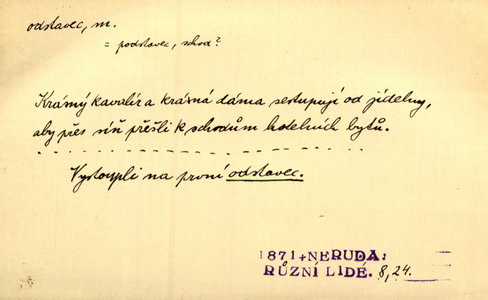 odstavec, m.
= podstavec, schod?
Krásný kavalír a krásná dáma sestupují od jídelny,
aby přes síň přešli k schodům hotelních bytů.
Vystoupli na první odstavec.
1871+NERUDA:
RŮZNÍ LIDÉ. 8,24.